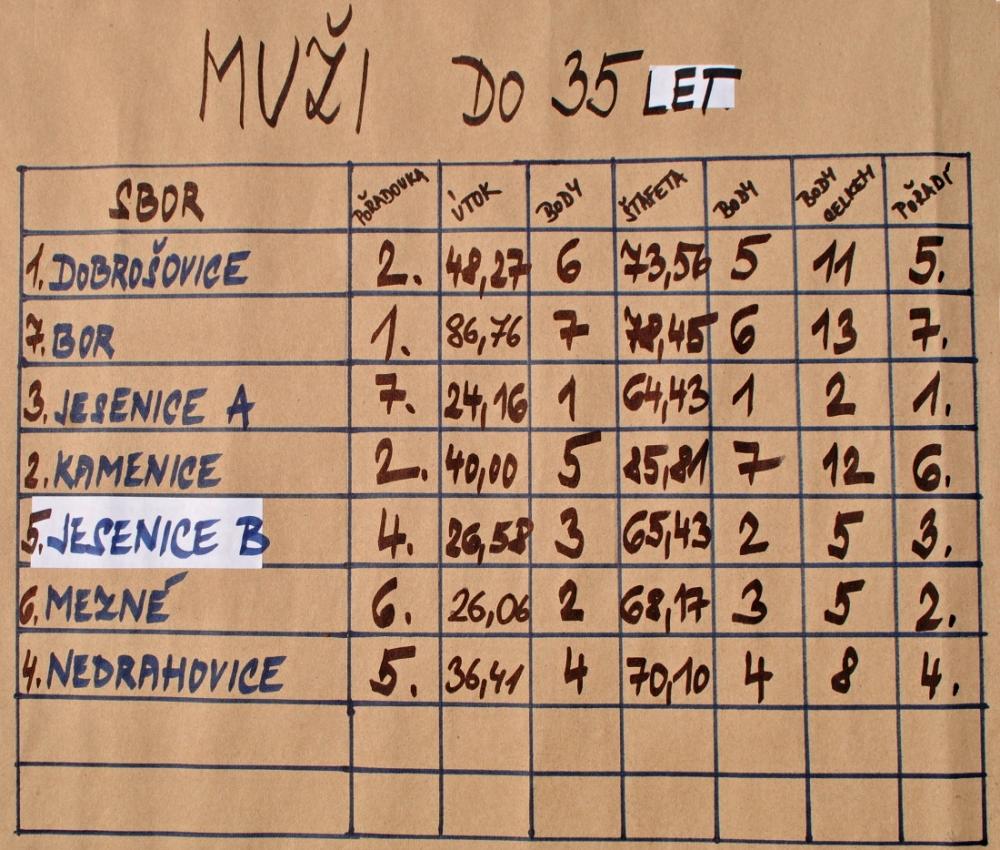 MUŽI DO 35 LET
SBOR POŘADOVKA ÚTOK BODY ŠTAFETA BODY BODY CELKEM POŘADÍ
1. DOBROŠOVICE 2. 48,27 6 73,56 5 11 5.
7. BOR 1. 86,76 7 78,45 6 13 7.
3. JESENICE A 7. 24,16 1 64,43 1 2 1.
2. KAMENICE 2. 40,00 5 85,81 7 12 6.
5. JESENICE B 4. 26,58 3 65,43 2 5 3.
6. MEZNÉ 6. 26,06 2 68,17 3 5 2.
4. NEDRAHOVICE 5. 36,41 4 70,10 4 8 4.